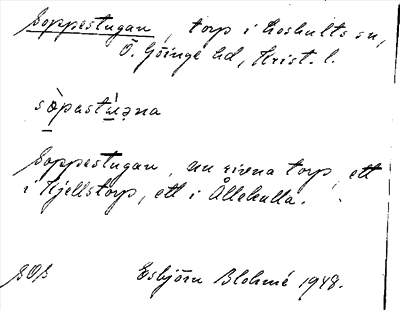 Soppestugan, torp i Loshults sn,
Ö. Göinge hd, Krist. l.
sòpastú̱əna
Soppestugan, nu rivna torp, ett
i Kjellstorp, ett i Ållekulla.
Esbjörn Blohmé 1948.